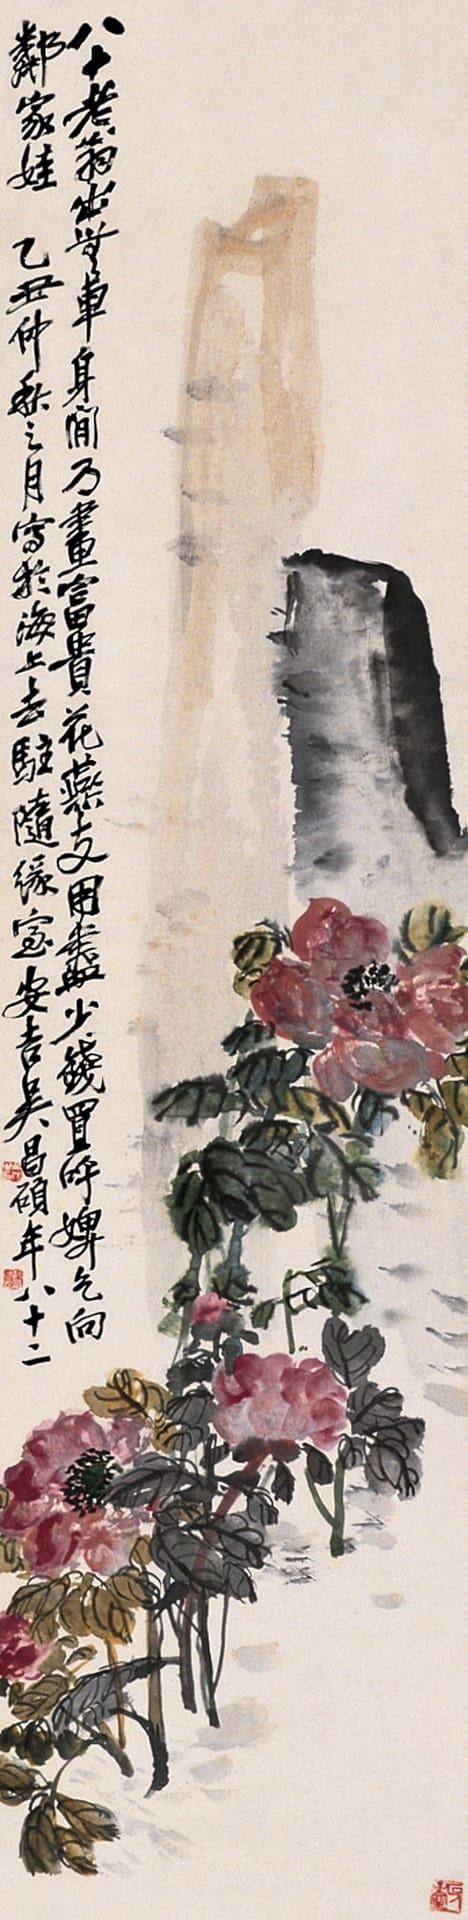 八十老翁出無車身閒乃畫富貴花燕支用盡少錢買呼婢乞向
鄰家娃 乙丑仲秋之月寫於海上去駐隨緣室安吉吳昌碩年八十二